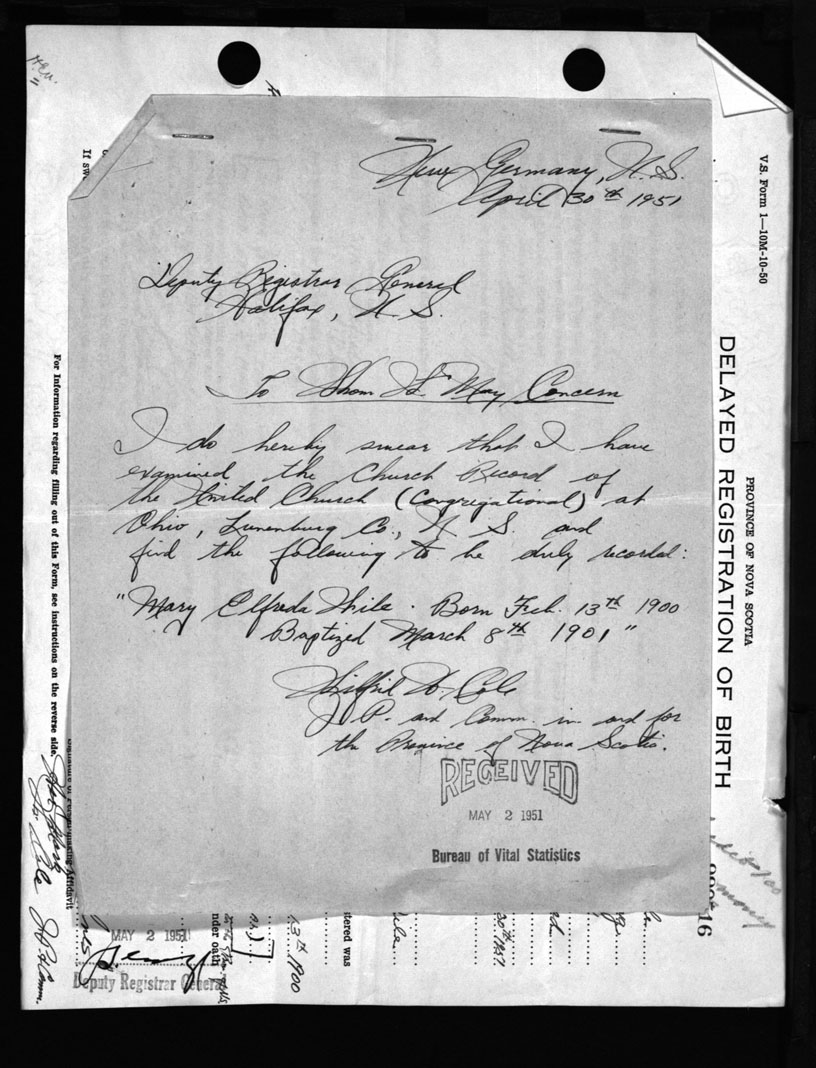 New Germany, N.S.
April 30th 1951
Deputy Registrar General
Halifax, N.S.
To Whom It May Concern
I do hereby swear that I have
examined the Church Record of
the United Church (Congregational) at
Ohio, Lunenburg Co., N.S. and
find the following to be duly recorded:
"Mary Elfreda Wile. Born Feb. 13th 1900
Baptized March 8th 1901"
Wilfrid W. Cole
J.P. and Comm. in and for
the Province of Nova Scotia.
RECEIVED
MAY 2 1951
Bureau of Vital Statistics
V.S. Form 1—10M-10-50
PROVINCE OF NOVA SCOTIA
DELAYED REGISTRATION OF BIRTH
16
For Information regarding filling out of this Form, see instructions on the reverse side.
If sw
Affidavit
MAY 2 1951
Deputy Registrar General
nder oath
13th 1900
tered was
30th 1951